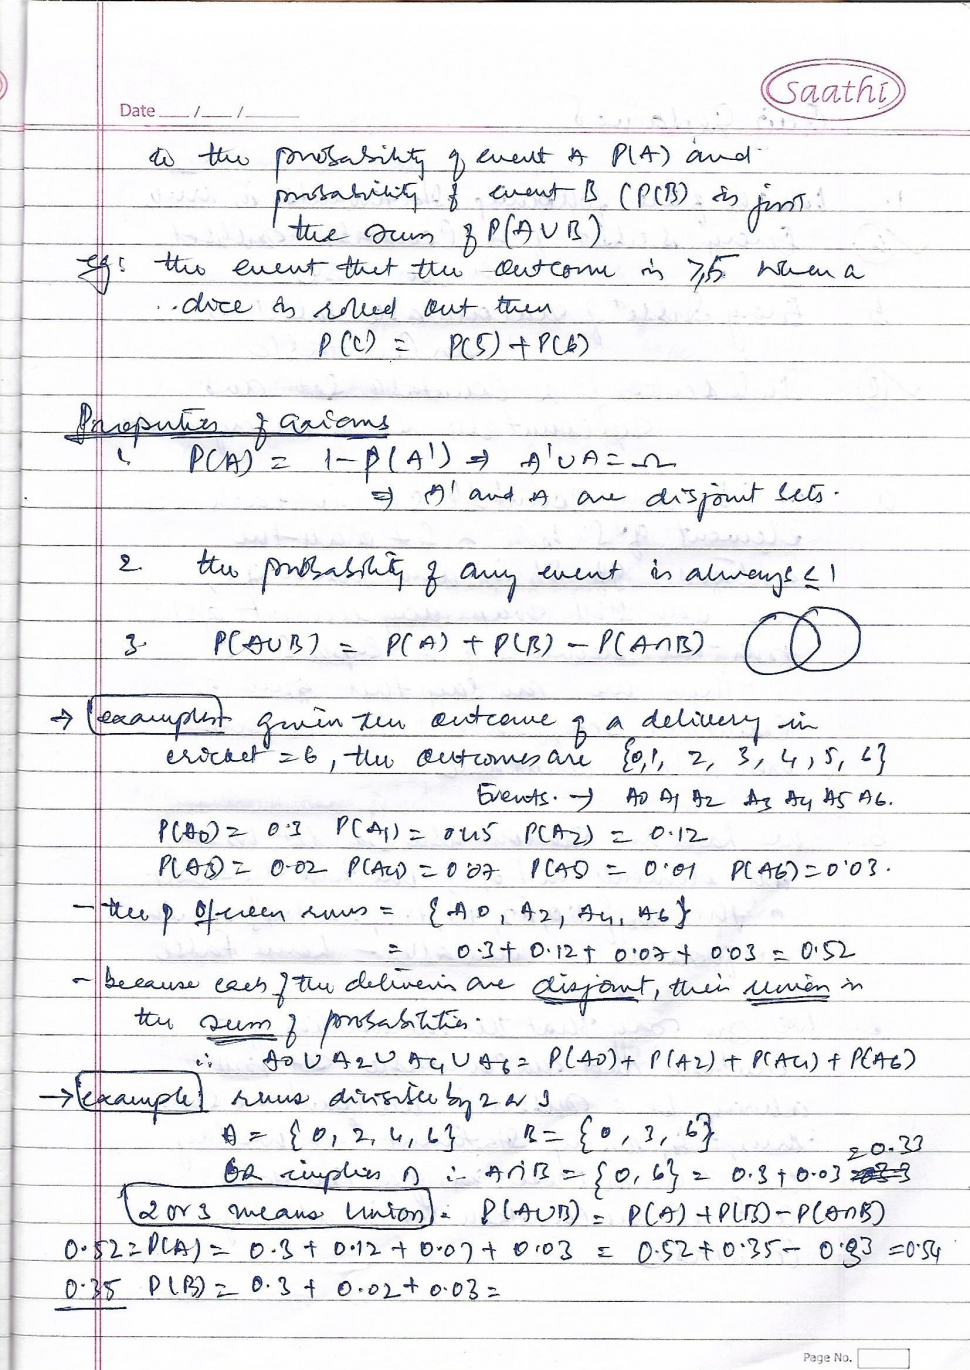 Saathi
Date __/__/____
to the probability of event A P(A) and
probability of event B (P(B) is just
the sum of P(A∪B)
eg: the event that the outcome is ≥5 when a
dice is rolled out then
P(C) = P(5)+P(6)
Properties of axioms
1. P(A) = 1-P(A') ⇒ A'∪A=Ω
⇒ A' and A are disjoint sets.
2 the probability of any event is always ≤ 1
3. P(A∪B) = P(A) + P(B) - P(A∩B)
→ examples given the outcome of a delivery in
cricket = 6, the outcomes are {0,1, 2, 3, 4, 5, 6}
Events. → A0 A1 A2 A3 A4 A5 A6.
P(A0)= 0.3 P(A1)= 0.45 P(A2) = 0.12
P(A3)= 0.02 P(A4)= 0.07 P(A5) = 0.01 P(A6)=0.03.
- the p of even runs = {A0, A2, A4, A6}
= 0.3+ 0.12+ 0.07+ 0.03 = 0.52
- because each of the deliveries are disjoint, their union is
the sum of probabilities.
∴ A0 ∪ A2 ∪ A4 ∪ A6 = P(A0)+ P(A2) + P(A4) + P(A6)
→ example runs divisible by 2 or 3
A = {0, 2, 4, 6} B = {0, 3, 6}
OR implies ∩ ∴ A∩B = {0, 6} = 0.3+0.03 = 0.33
2 or 3 means Union. P(A∪B) = P(A)+P(B)-P(A∩B)
0.52=P(A)= 0.3+ 0.12+0.07+ 0.03 = 0.52+0.35- 0.33 =0.54
0.35 P(B)= 0.3+ 0.02+ 0.03=
Page No.